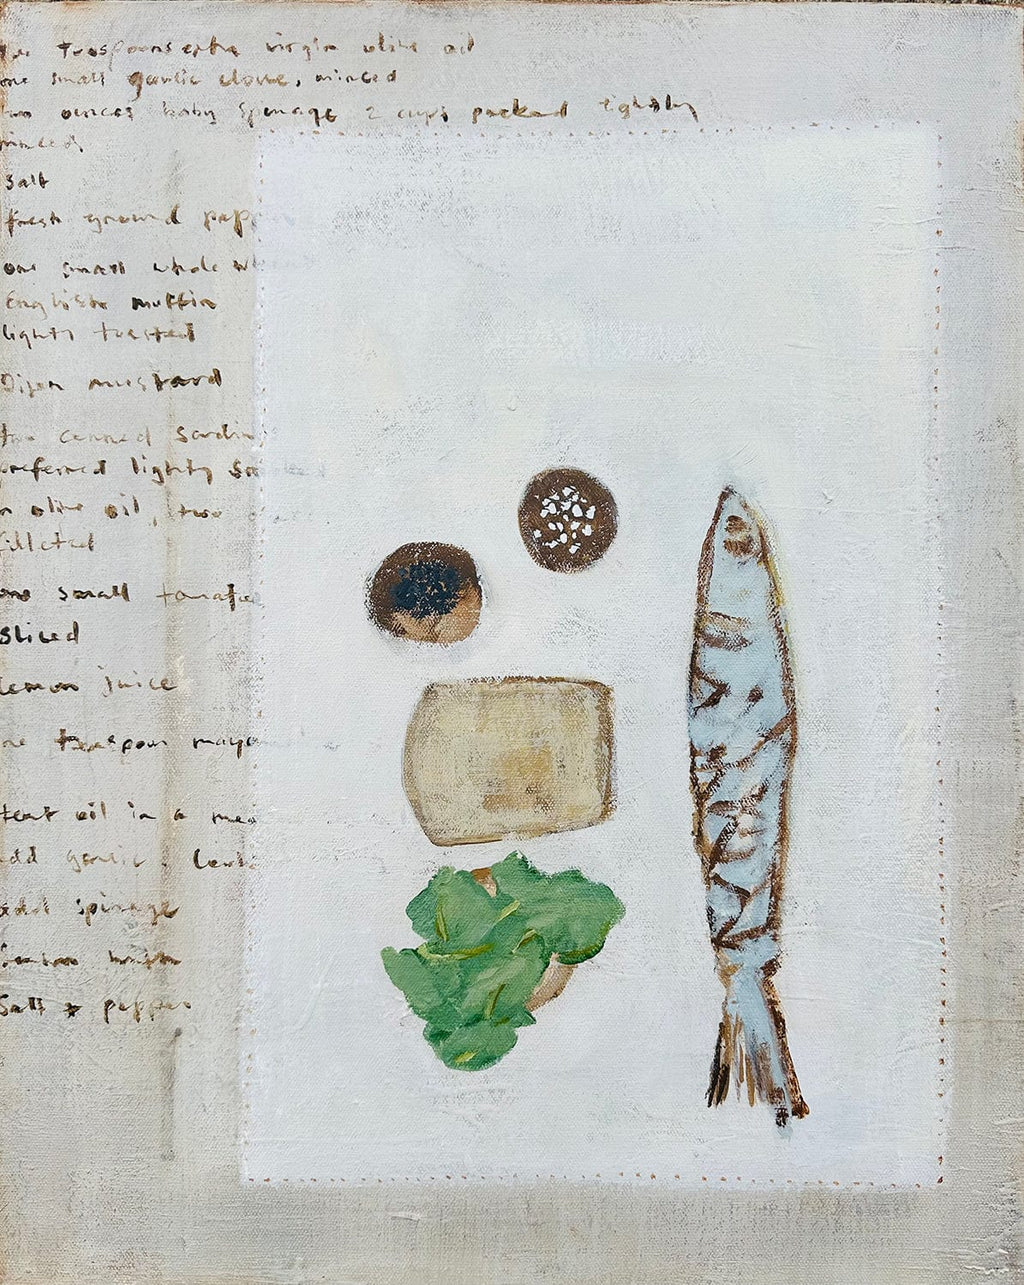 two teaspoons extra virgin olive oil
one small garlic clove, minced
two ounces baby spinage 2 cups packed tightly
minced
salt
fresh ground pepp
one small whole wh
English muffin
lightly toasted
Dijon mustard
two canned sardin
preferred lightly smoked
in olive oil, two
filleted
one small tomatoe
sliced
lemon juice
one teaspoon mayo
Heat oil in a med
add garlic.
add spinage
Season with
Salt + pepper